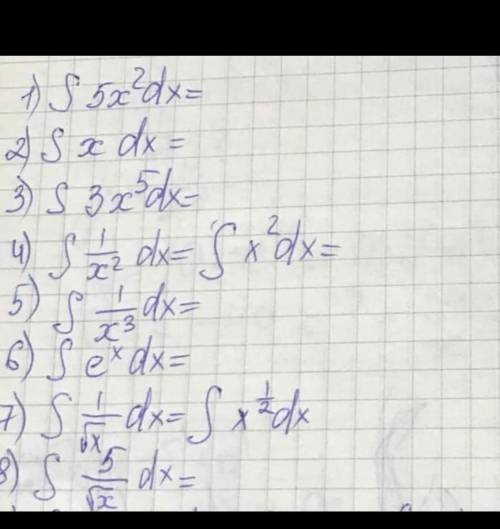 1) ∫ 5x²dx=
2) ∫ x dx =
3) ∫ 3x⁵dx=
4) ∫ 1/x² dx= ∫ x²dx=
5) ∫ 1/x³ dx=
6) ∫ eˣ dx=
7) ∫ 1/√x dx= ∫ x^(1/2) dx
8) ∫ 5/√x dx=